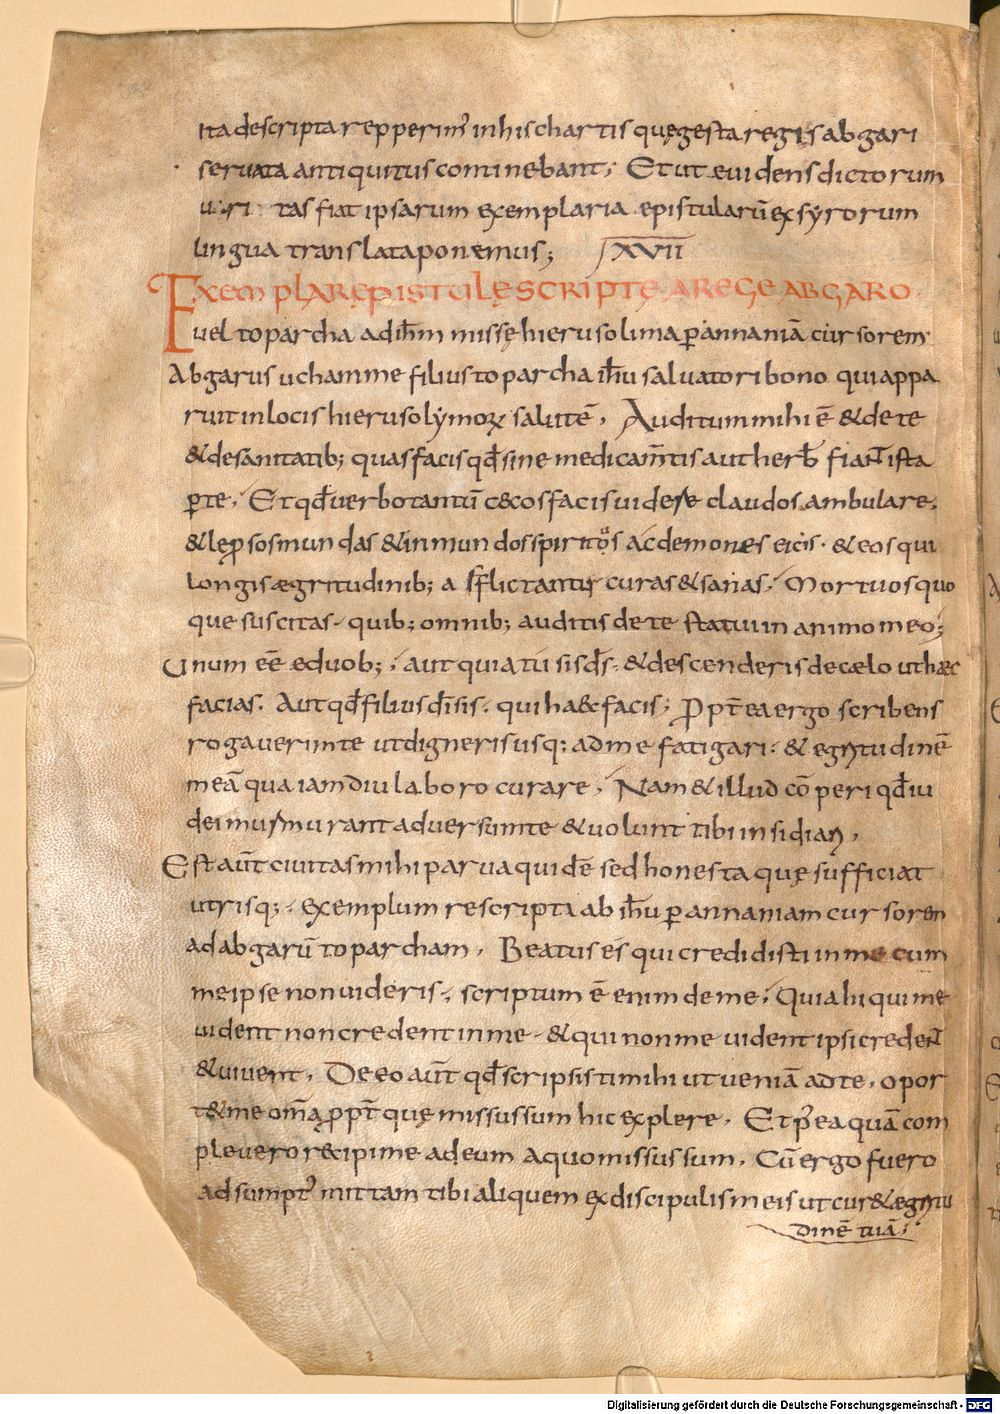 ita descripta repperim᾽ in his chartis quę gesta regis abgari
seruata antiquitus continebant; Et ut euidens dictorum
ueri tas fiat ipsarum exemplaria epistularū ex syrorum
lingua translata ponemus; XXVII
EXEMPLAR ĘPISTULĘ SCRIPTĘ A REGE ABGARO
uel toparcha ad ihm̄ missę hierusolima ꝑ annaniā cursorem
Abgarus uchamme filius toparcha ihū saluatori bono qui appa
ruit in locis hierusolymoꝝ salutē. Auditum mihi ē & de te
& de sanitatib; quas facis qđ sine medicam̄tis aut herb̄ fiant ista
ꝑ te. Et qđ uerbo tantū c&cos facis uidere claudos ambulare.
& lęprosos mundas & inmundos spiritos ac demones eicis. & eos qui
longis ægritudinib; afflictantur curas & sanas. Mortuos quo
que suscitas. quib; omnib; auditis de te statui in animo meo;
Unum eē e duob;. aut quia tu sis ds̄. & descenderis de cælo ut hæc
facias. Aut qđ filius dī sis. qui h&c facis; Propt̄ ea ergo scribens
rogauerim te ut digneris usq; ad me fatigari. & egritudinē
meā qua iam diu laboro curare. Nam & illud cōperi qđ iu
dei murmurant aduersum te & uolunt tibi insidiari.
Est aut̄ ciuitas mihi parua quidē sed honesta quę sufficiat
utrisq;. exemplum rescripti ab ihū ꝑ annaniam cursorem
ad abgarū toparcham. Beatus es qui credidisti in me cum
me ipse non uideris. scriptum ē enim de me. Quia hi qui me
uident non credent in me. & qui non me uident ipsi credent
& uiuent. De eo aut̄ qđ scripsisti mihi ut ueniā ad te. opor
t& me om̄a propt̄ quę missus sum hic explere. Et p̄ ea quā com
pleuero recipi me ad eum a quo missus sum. Cū ergo fuero
adsumpt᾽ mittam tibi aliquem ex discipulis meis ut cur& ægritu
dinē tuā;
Digitalisierung gefördert durch die Deutsche Forschungsgemeinschaft - DFG